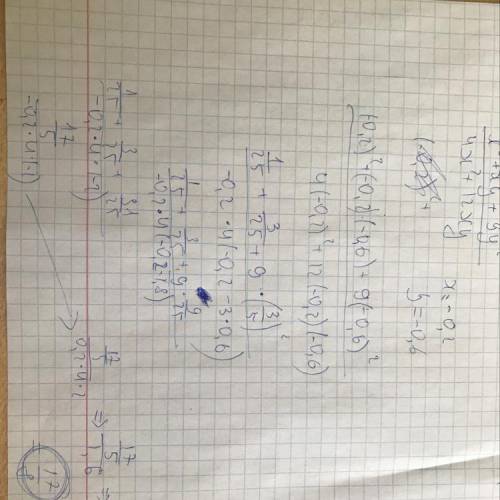 x² + xy + 9y²
4x² + 12xy
x = -0,2
y = -0,6
(-0,2)² + (-0,2)(-0,6) + 9(-0,6)²
4(-0,2)² + 12(-0,2)(-0,6)
1/25 + 3/25 + 9 · (3/5)²
-0,2 · 4(-0,2 - 3·0,6)
1/25 + 3/25 + 9 · 9/25
-0,2 · 4(-0,2-1,8)
1/25 + 3/25 + 81/25
-0,2 · 4 · (-2)
17/5
-0,2 · 4 (-2)
17/5
0,2 · 4 · 2
⇒ 17/5
1,6
⇒